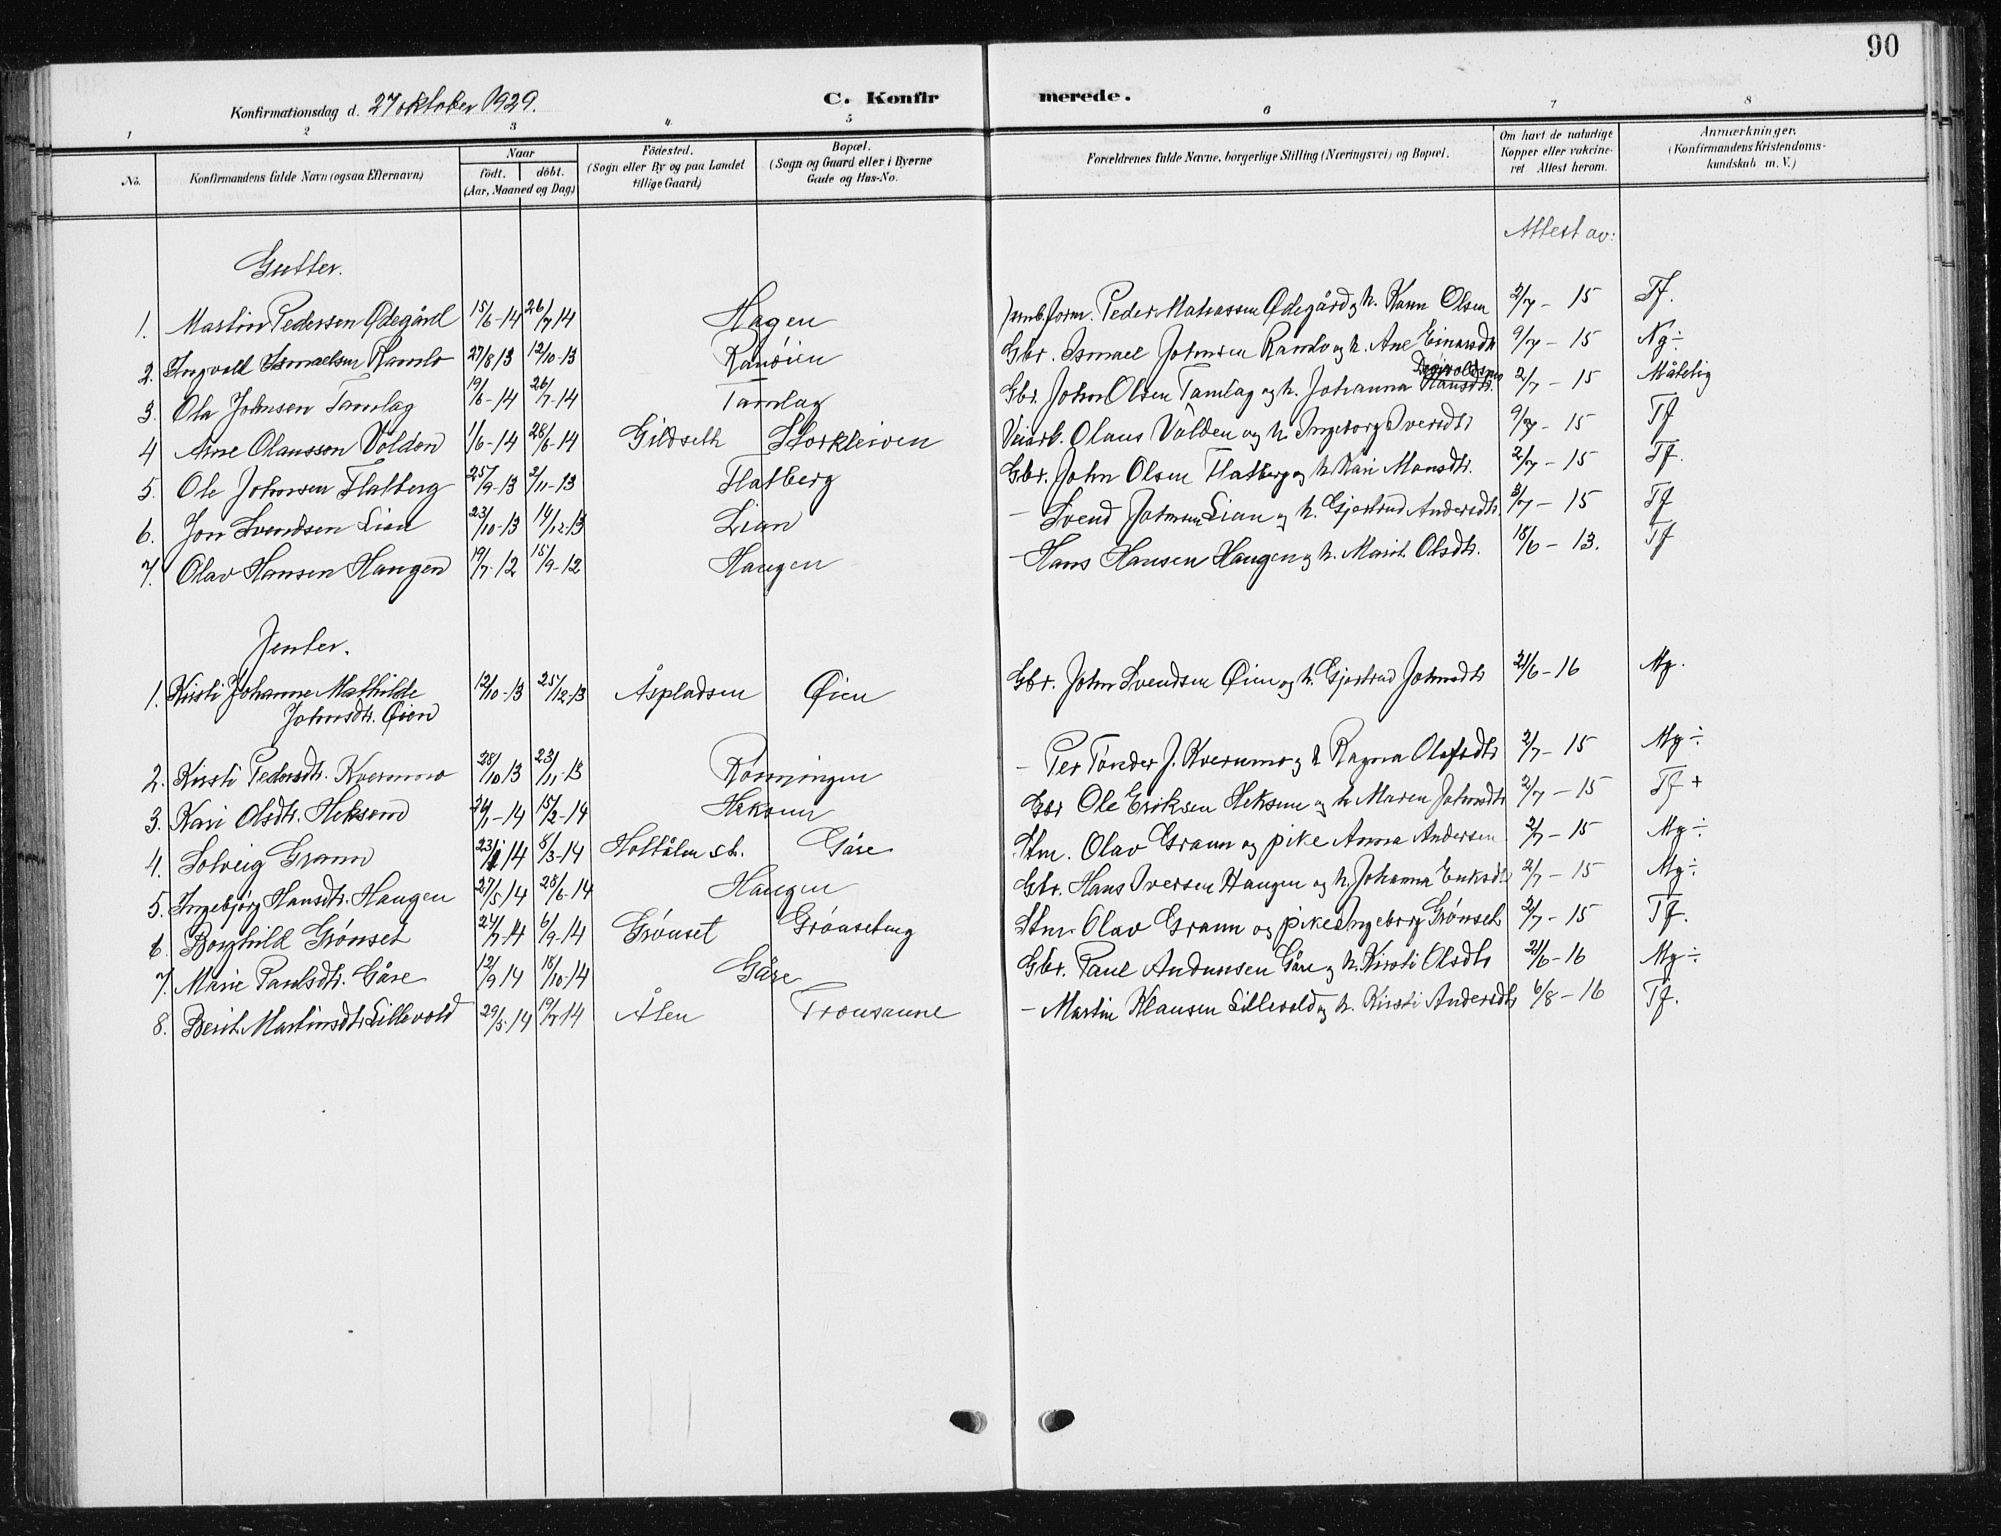 90
Konfirmationsdag d. 27 oktober 1929. C. Konfirmerede.
1 2 3 4 5 6 7 8
No. Konfirmandens fulde Navn (ogsaa Efternavn) Naar födt. döbt. (Aar, Maaned og Dag) Födested. (Sogn eller By og paa Landet tillige Gaard) Bopæl. (Sogn og Gaard eller i Byerne Gade og Hus-No. Forældrenes fulde Navne, borgerlige Stilling (Næringsvei) og Bopæl. Om havt de naturlige Kopper eller vakcineret Attest herom. Anmærkninger. (Konfirmandens Kristendomskundskab m. V.)
Attest av:
Gutter.
1. Martin Pedersen Ødegård 15/6-14 26/7 14 Hagen form. Peder Ødegård og h. Karen Olsen 2/7 - 15 Tf.
2. Ingvald Ismaelsen Ramlo 27/8 13 12/10-13 Ramöien Gbr. Ismael Johnsen Ramlo og h. Ane Einarsdtr 9/7 - 15 Ng÷
3. Ola Johnsen Tamlag 19/6-14 26/7-14 Tamlag Gbr. John Olsen Tamlag og h. Johanna Hansdtr. 2/7 - 15 Måtelig
4 Arne Olausson Volden 1/6-14 28/6-14 Gildseth Storkleiven Veiarb. Olaus Volden og h. Ingeborg Iversdtr 9/7 - 15 Tf
5. Ole Johnsen Flatberg 25/9-13 2/11-13 Flatberg Gbr. John Olsen Flatberg og h. Kari Monsdtr. 2/7 - 15 Tf.
6. Jon Svendsen Lian 23/10-13 14/12-13 Lian - Svend Johnsen Lian og h. Gjertrud Andersdtr. 3/7 - 15 Tf
7. Olav Hansen Haugen 19/7-12 15/9-12 Haugen - Hans Hansen Haugen og h. Marit Olsdtr. 18/6 - 13. Tf
Jenter.
1. Kirsti Johanne Mathilde 12/10-13 25/12-13 Åspladsen Øien Gbr. John Svendsen Øien og h. Gjertrud Johnsdtr 21/6 - 16 Mg.
Johnsdtr. Øien
2. Kirsti Pedersdtr. Kvernmo 28/10 13 23/11-13 Rønningen - Per Tønder J. Kvernmo og h Ragna Olufsdtr 2/7 - 15 Mg÷
3. Kari Olsdtr. Heksem 24/1-14 15/2-14 Heksem Gbr Ole Eriksen Heksem og h Maren Johnsdtr 2/7 - 15 Tf +
4. Solveig Graun 23/1 14 8/3-14 Holtålen st. Gåre Stm. Olav Graun og pike Anna Andersen 2/7 - 15 Mg÷
5. Ingebjørg Hansdtr. Haugen 27/5 14 28/6-14 Haugen Gbr. Hans Iversen Haugen og h. Johanna Eriksdtr 2/7 - 15 Mg÷
6 Borghild Grønset 24/7-14 6/9-14 Grønset Grønseteng Stm. Olav Graun og pike Ingeborg Grønset 2/7 - 15 Tf.
7. Marie Paulsdtr. Gåre 12/9 14 18/10-14 Gåre Gbr. Paul Andersen Gåre og h. Kirsti Olsdtr 21/6-16 Mg÷
8. Berit Martinsdtr. Lillevold 29/5 14 19/7 14 Ålen - Martin Klausen Lillevold og h. Kirsti Andersdtr 6/8 - 16 Tf.